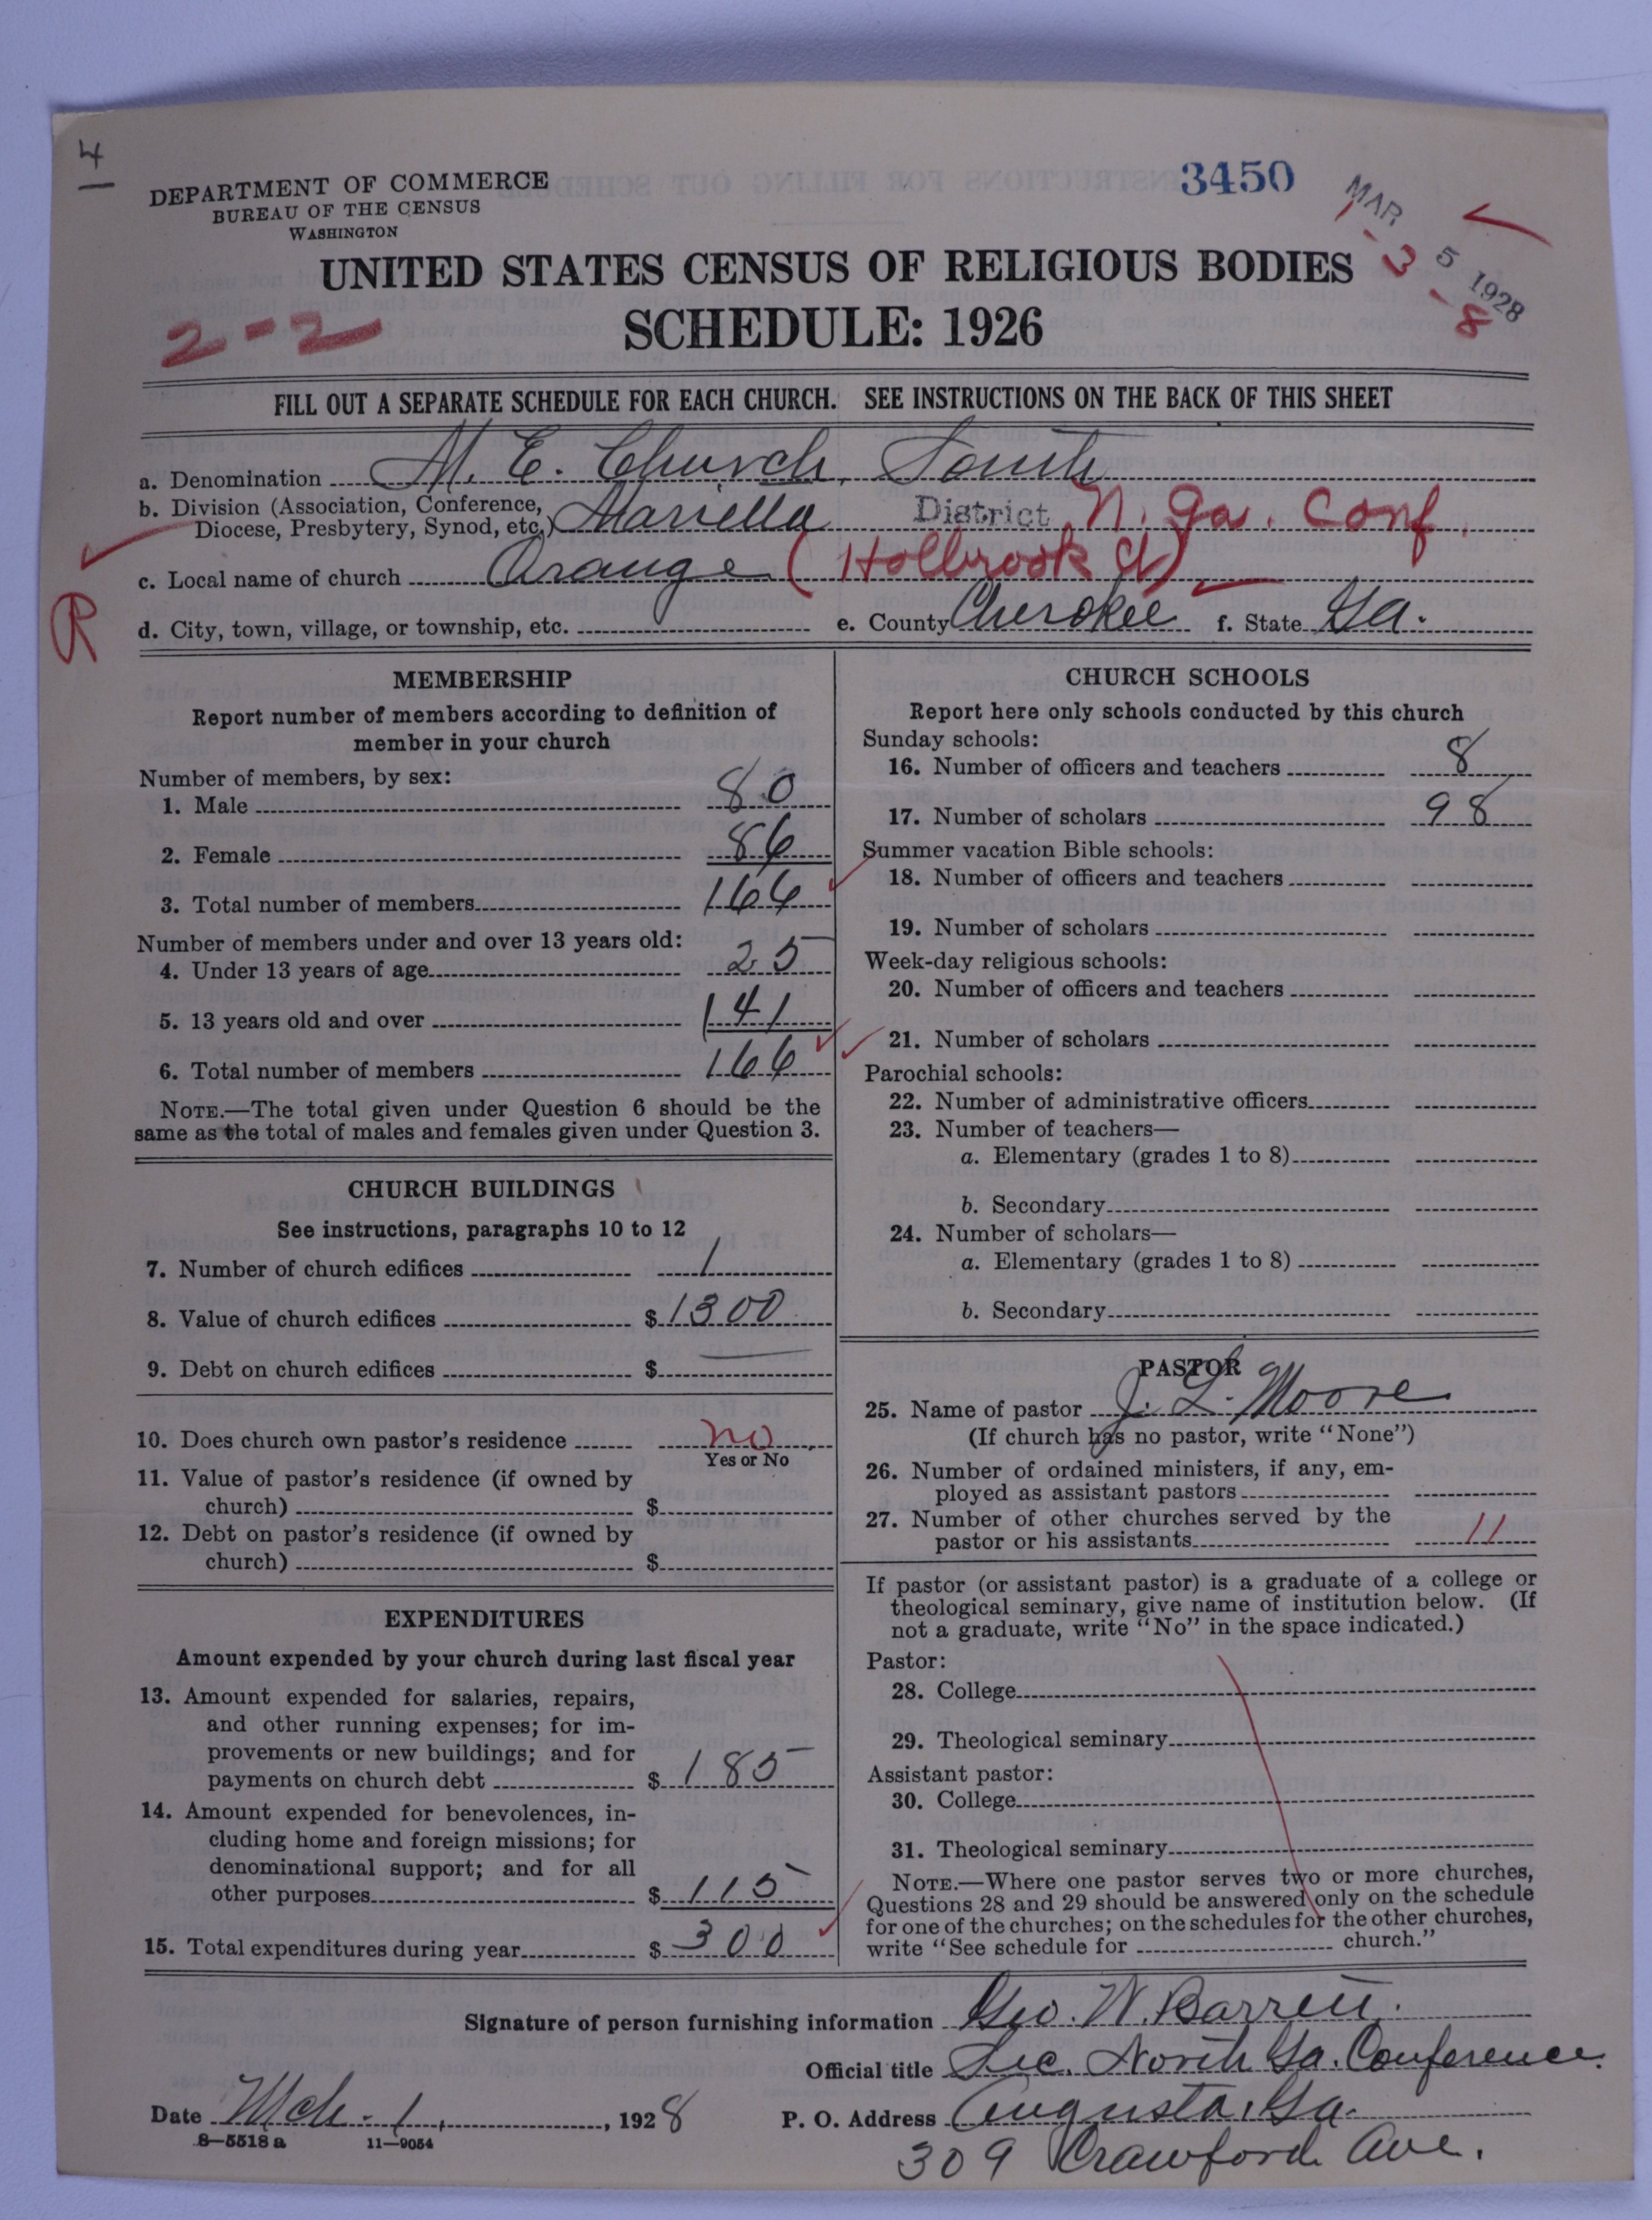 4
DEPARTMENT OF COMMERCE
BUREAU OF THE CENSUS
WASHINGTON
3450
MAR 5 1928
1-3-8
UNITED STATES CENSUS OF RELIGIOUS BODIES
2-2
SCHEDULE: 1926
FILL OUT A SEPARATE SCHEDULE FOR EACH CHURCH. SEE INSTRUCTIONS ON THE BACK OF THIS SHEET
a. Denomination M. E. Church, South
b. Division (Association, Conference, Diocese, Presbytery, Synod, etc.) Mariella District N. Ga. Conf.
c. Local name of church Orange (Holbrook Ct)
R
d. City, town, village, or township, etc. e. County Cherokee f. State Ga.
MEMBERSHIP
Report number of members according to definition of
member in your church
Number of members, by sex:
1. Male 80
2. Female 86
3. Total number of members 166
Number of members under and over 13 years old:
4. Under 13 years of age 25
5. 13 years old and over 141
6. Total number of members 166
NOTE.—The total given under Question 6 should be the
same as the total of males and females given under Question 3.
CHURCH BUILDINGS
See instructions, paragraphs 10 to 12
7. Number of church edifices 1
8. Value of church edifices $1300
9. Debt on church edifices $ —
10. Does church own pastor's residence no
Yes or No
11. Value of pastor's residence (if owned by
church) $
12. Debt on pastor's residence (if owned by
church) $
EXPENDITURES
Amount expended by your church during last fiscal year
13. Amount expended for salaries, repairs,
and other running expenses; for im-
provements or new buildings; and for
payments on church debt $ 185
14. Amount expended for benevolences, in-
cluding home and foreign missions; for
denominational support; and for all
other purposes $ 115
15. Total expenditures during year $ 300
CHURCH SCHOOLS
Report here only schools conducted by this church
Sunday schools:
16. Number of officers and teachers 8
17. Number of scholars 98
Summer vacation Bible schools:
18. Number of officers and teachers
19. Number of scholars
Week-day religious schools:
20. Number of officers and teachers
21. Number of scholars
Parochial schools:
22. Number of administrative officers
23. Number of teachers—
a. Elementary (grades 1 to 8)
b. Secondary
24. Number of scholars—
a. Elementary (grades 1 to 8)
b. Secondary
PASTOR
25. Name of pastor J. L. Moore
(If church has no pastor, write "None")
26. Number of ordained ministers, if any, em-
ployed as assistant pastors
27. Number of other churches served by the
pastor or his assistants 11
If pastor (or assistant pastor) is a graduate of a college or
theological seminary, give name of institution below. (If
not a graduate, write "No" in the space indicated.)
Pastor:
28. College
29. Theological seminary
Assistant pastor:
30. College
31. Theological seminary
NOTE.—Where one pastor serves two or more churches,
Questions 28 and 29 should be answered only on the schedule
for one of the churches; on the schedules for the other churches,
write "See schedule for church."
Signature of person furnishing information Geo. W. Barrett.
Official title Sec. North Ga. Conference.
Date Mch. 1, 1928 P. O. Address Augusta, Ga.
8—5518 a 11—9054
309 Crawford Ave.